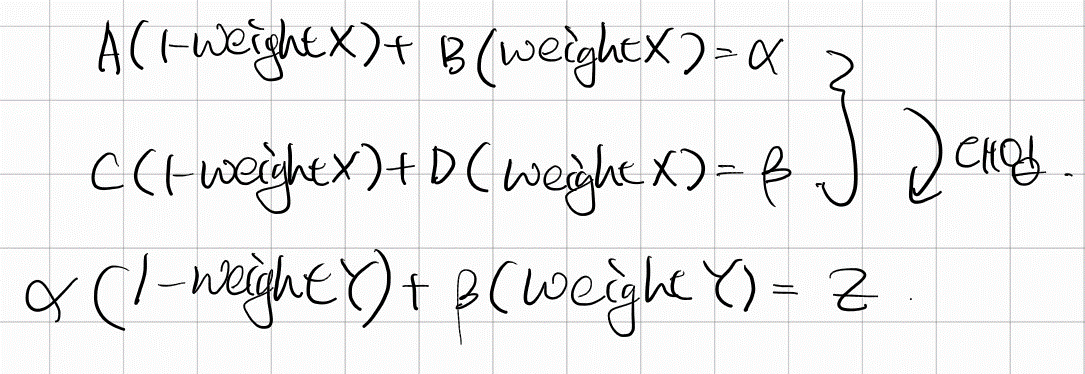 A(1-weightX)+ B(weightX)=α
C(1-weightX)+D(weightX)=β } 대입.
α(1-weightY)+β(weightY)=Z.